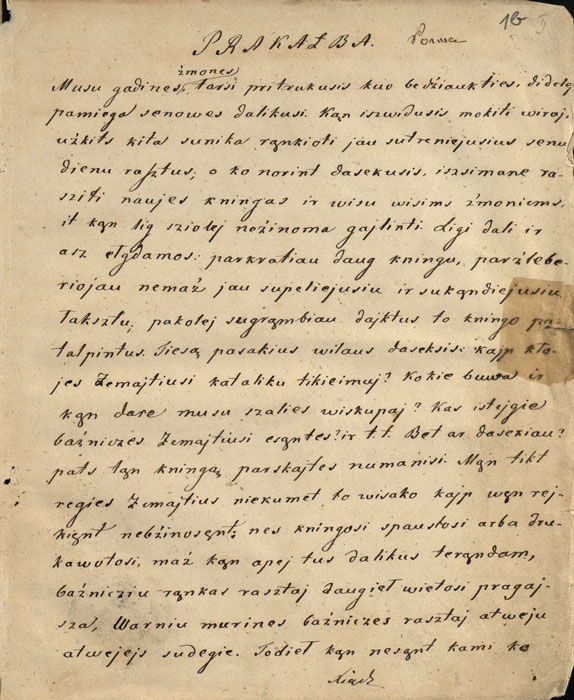 16
PRAKAŁBA.
żmones
Musu gadines, tarsi pritrukusis kuo bedżiaukties, didelę
pamiega senowes dalikusi. Kąn iszwidusis mokiti wiraj,
użkits kita sunika rąnkioti jau sutreniejusius senu
dienu rasztus; o ko norint dasekusis, iszsimane ra-
sziti naujes kningas ir wisu wisims żmoniems,
it kąn lig sziolej nożinoma gajlinti. Ligi dali ir
asz ełgdamos: parkratiau daug kningu, parżlebe-
riojau nemaż jau supeliejusiu ir sukąndiejusiu
łaksztu, pakolej sugrąmbiau dajktus to kningo pa-
talpintus. Tiesą pasakius wilaus daseksis: kajp kło-
jes Żemajtiusi kataliku tikieimaj? Kokie buwa ir
kąn dare musu szalies wiskupaj? Kas istejgie
bażniczes Żemajtiusi esąntes? ir t.t. Bet ar dasekiau?
pats tąn kningą parskajtes numanisi. Mąn tikt
regies Żemajtius niekumet to wisako kajp wąn rej-
kiąnt nebżinosąnt; nes kningosi spaustosi arba dru-
kawotosi, maż kąn apej tus dalikus terąndam,
bażnicziu rąnkas rasztaj daugieł wietosi pragaj-
sza, Warniu murines bażniczes rasztaj atweju
atwejejs sudegie. Todieł kąn nesąnt kami ko